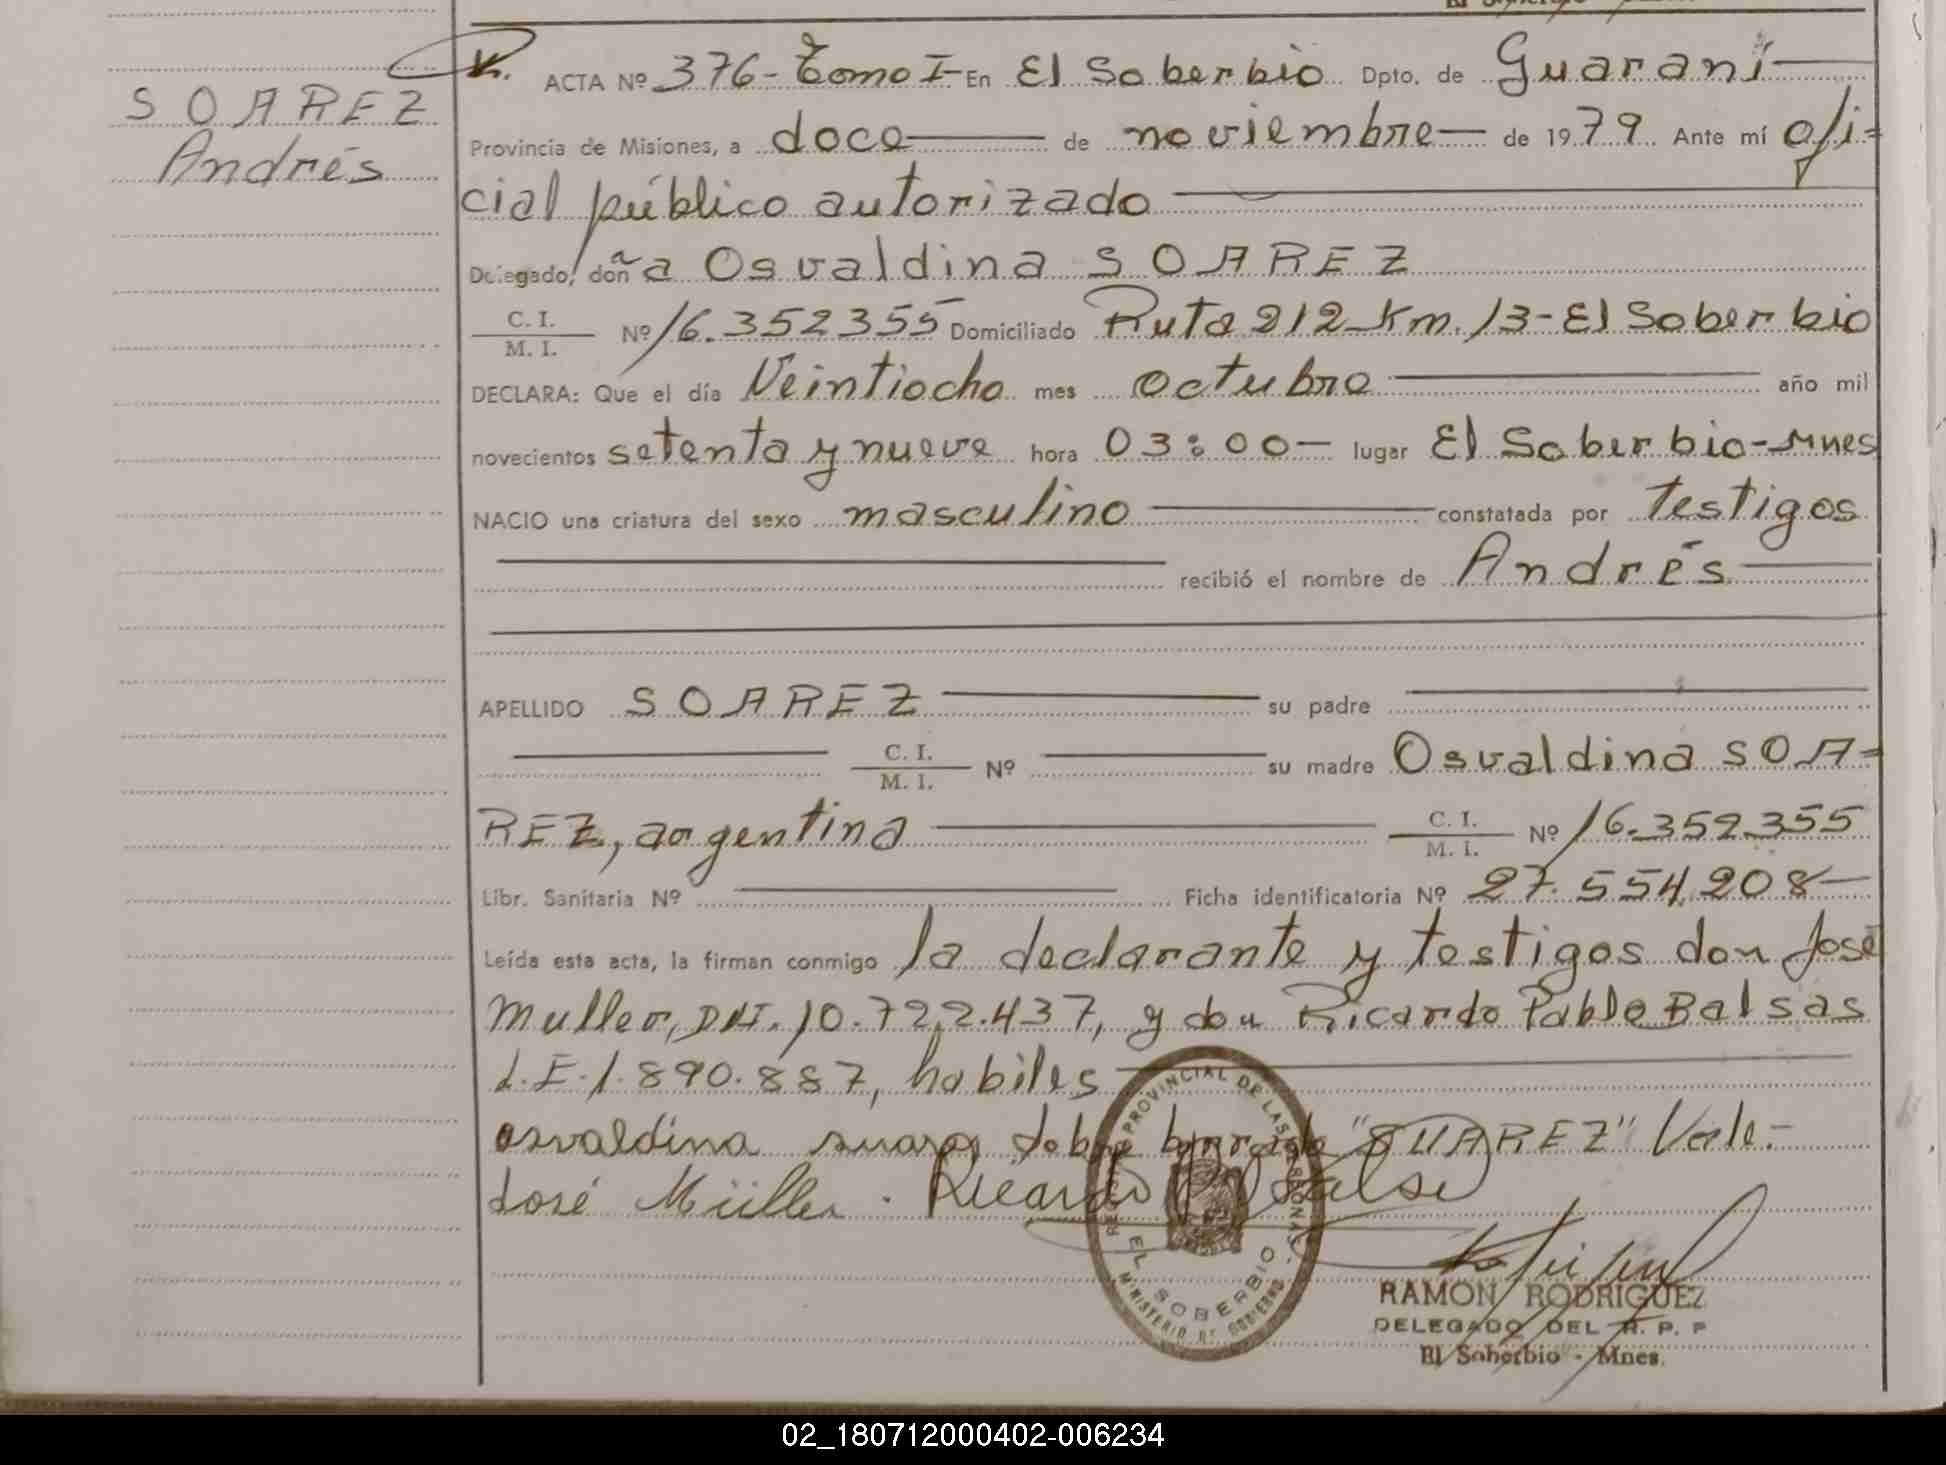 SOAREZ
Andrés
ACTA Nº 376- Tomo I- En El Soberbio Dpto. de Guaraní
Provincia de Misiones, a doce de noviembre de 1979. Ante mí ofi=
cial público autorizado
Delegado, doña Osvaldina SOAREZ
C. I.
M. I. Nº 16.352355 Domiciliado Ruta 212 Km. 13- El Soberbio
DECLARA: Que el día Veintiocho mes octubre año mil
novecientos setenta y nueve hora 03:00- lugar El Soberbio-Mnes
NACIO una criatura del sexo masculino constatada por testigos
recibió el nombre de Andrés
APELLIDO SOAREZ su padre
C. I.
M. I. Nº su madre Osvaldina SOA=
REZ, argentina C. I.
M. I. Nº 16.352.355
Libr. Sanitaria Nº Ficha identificatoria Nº 27.554.208-
Leída esta acta, la firman conmigo la declarante y testigos don José
Muller, DNI. 10.722.437, y don Ricardo Pablo Balsas
L.E. 1.890.887, habiles
osvaldina sobre borrado "SUAREZ" Vale.-
José Müller. Ricardo
REGISTRO PROVINCIAL DE LAS PERSONAS
EL SOBERBIO
MINISTERIO DE GOBIERNO
RAMON RODRIGUEZ
DELEGADO DEL R. P. P
El Soberbio - Mnes.
02_180712000402-006234